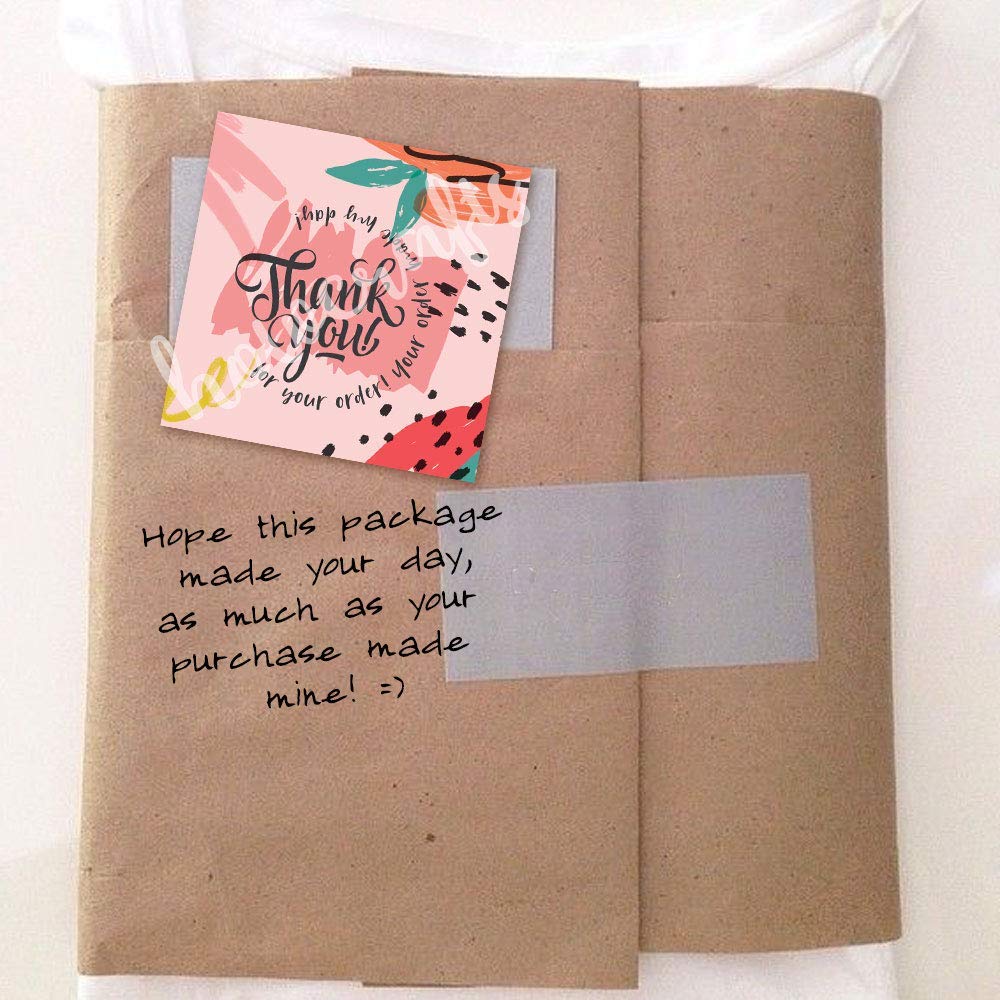 Thank
you!
for your order! Your order made my day!
Hope this package
made your day,
as much as your
purchase made
mine! =)